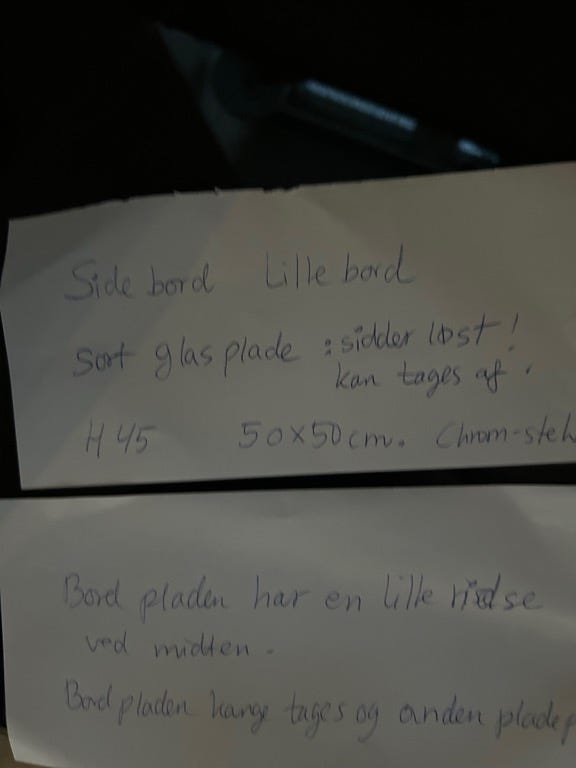 Side bord Lille bord
sort glas plade : sidder løst!
kan tages af.
H 45 50x50 cm. Chrom-stel
Bord pladen har en lille ridse
ved midten.
Bord pladen tages og anden plade